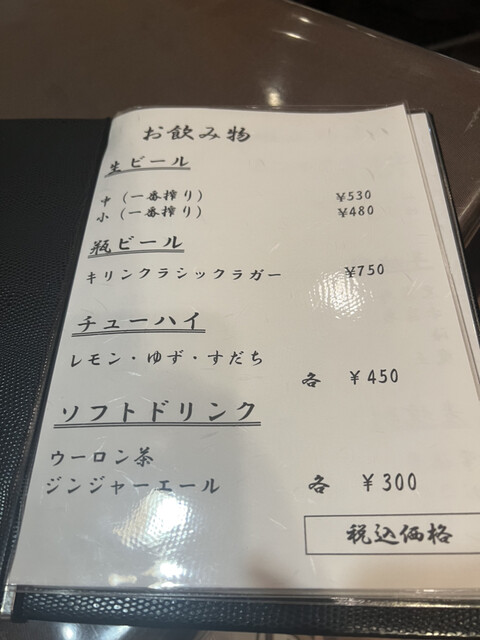 お飲み物
生ビール
中（一番搾り） ¥530
小（一番搾り） ¥480
瓶ビール
キリンクラシックラガー ¥750
チューハイ
レモン・ゆず・すだち
各 ¥450
ソフトドリンク
ウーロン茶
ジンジャーエール 各 ¥300
税込価格